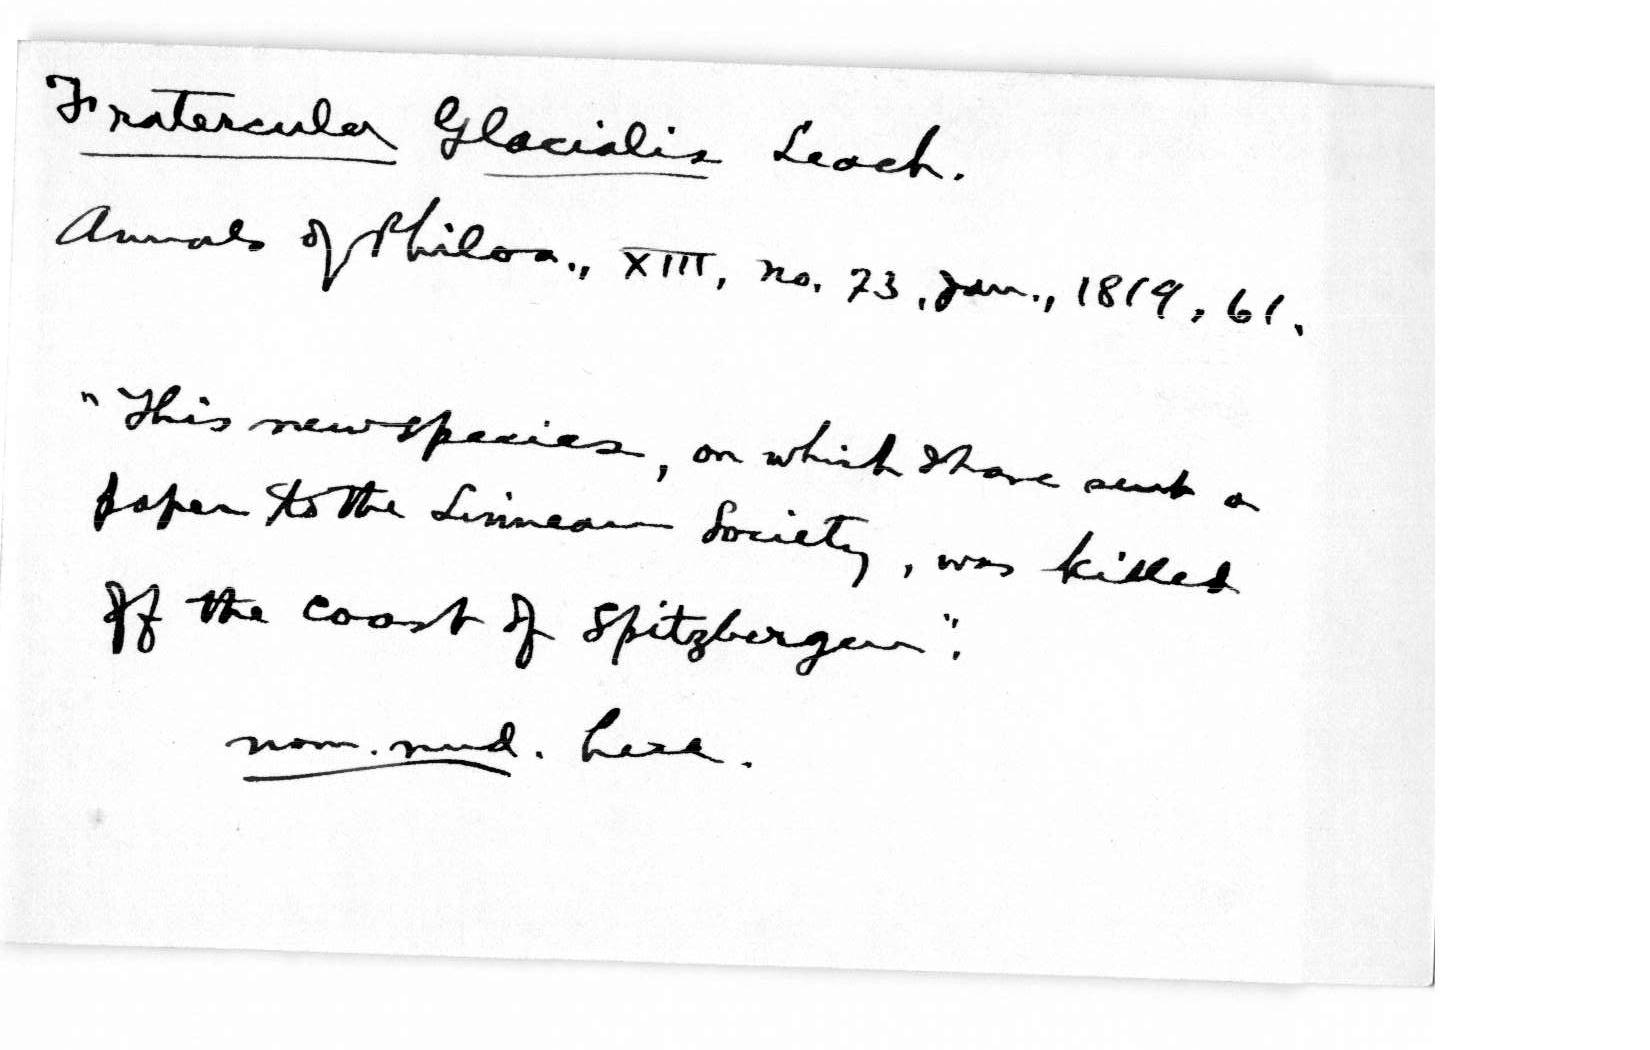 Fratercula Glacialis Leach.
Annals of Philos., XIII, no. 73, Jan., 1819, 61.
"This new species, on which I have sent a
paper to the Linnean Society, was killed
off the coast of Spitzbergen".
nom. nud. here.